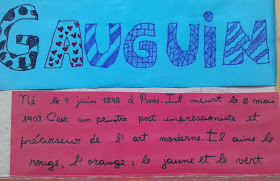 GAUGUiN
Né le 7 juin 1848 à Paris. Il meurt le 8 mai
1903 C'est un peintre post impressioniste et
précurseur de l'art moderne. Il aime le
rouge, l'orange, le jaune et le vert